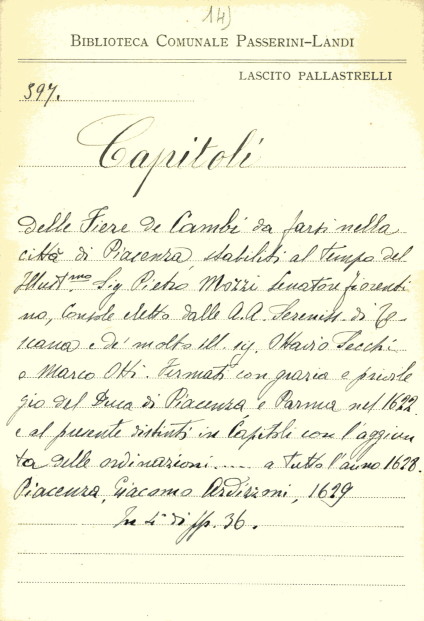 14)
BIBLIOTECA COMUNALE PASSERINI-LANDI
LASCITO PALLASTRELLI
397.
Capitoli
delle Fiere de Cambi da farsi nella
città di Piacenza, stabiliti al tempo del
Illust.mo Sig Pietro Mozzi senatore fiorenti
no, Console eletto dalle A.A. Sereniss. di To-
scana e de' molto ill. sig. Ottavio Secchi
o Marco Otti. Fermati con grazia e privile
gio del Duca di Piacenza e Parma nel 1622
e al presente distinti in Capitoli con l'aggiun
ta delle ordinazioni..... a tutto l'anno 1628.
Piacenza, Giacomo Ardizzoni, 1629
In 4° di pp. 36.